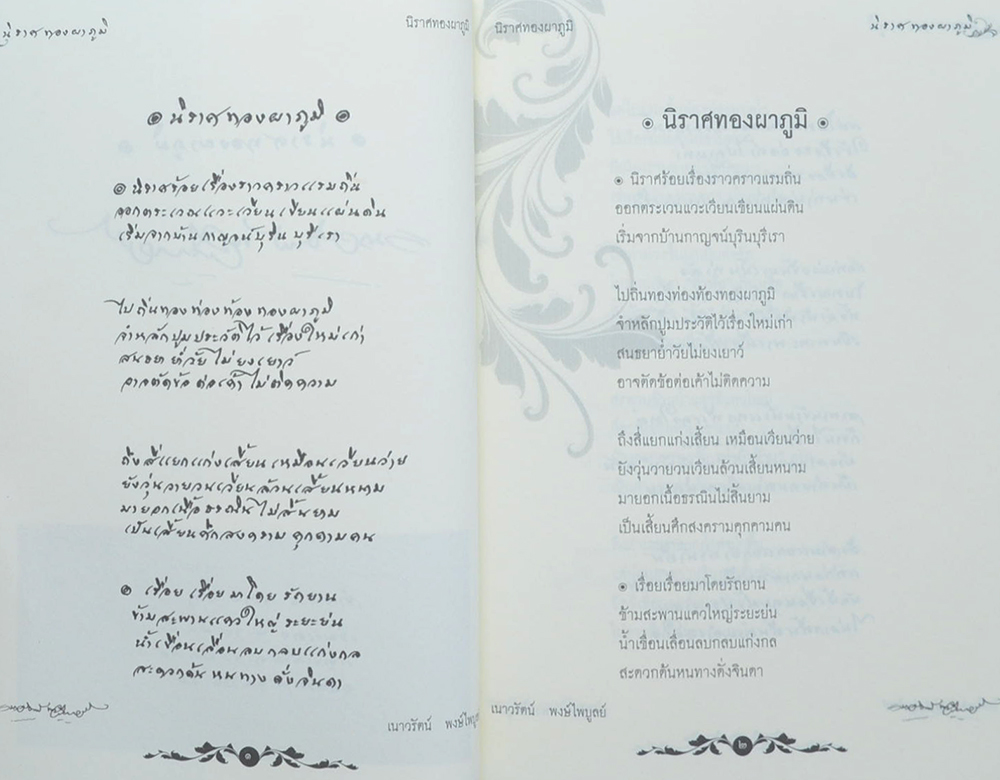 นิราศทองผาภูมิ
นิราศทองผาภูมิ
๏ นิราศทองผาภูมิ ๏
๏ นิราศร้อยเรื่องราวคราวแรมถิ่น
ออกตระเวนแวะเวียนเขียนแผ่นดิน
เริ่มจากบ้านกาญจน์บุรินบุรีเรา
ไปถิ่นทองท่องท้องทองผาภูมิ
จำหลักปูมประวัติไว้เรื่องใหม่เก่า
สนธยาย่ำวัยไม่ยงเยาว์
อาจตัดข้อต่อเค้าไม่ติดความ
ถึงสี่แยกแก่งเสี้ยน เหมือนเวียนว่าย
ยังวุ่นวายวนเวียนล้วนเสี้ยนหนาม
มายอกเนื้อธรณินไม่สิ้นยาม
เป็นเสี้ยนศึกสงครามคุกคามคน
๏ เรื่อยเรื่อยมาโดยรัถยาน
ข้ามสะพานแควใหญ่ระยะย่น
น้ำเขื่อนเลื่อนลบกลบแก่งกล
สะดวกด้นหนทางดั่งจินดา
เนาวรัตน์ พงษ์ไพบูลย์
๑
นิราศทองผาภูมิ
นิราศทองผาภูมิ
๏ นิราศทองผาภูมิ ๏
๏ นิราศร้อยเรื่องราวคราวแรมถิ่น
ออกตระเวนแวะเวียนเขียนแผ่นดิน
เริ่มจากบ้านกาญจน์บุรินบุรีเรา
ไปถิ่นทองท่องท้องทองผาภูมิ
จำหลักปูมประวัติไว้เรื่องใหม่เก่า
สนธยาย่ำวัยไม่ยงเยาว์
อาจตัดข้อต่อเค้าไม่ติดความ
ถึงสี่แยกแก่งเสี้ยน เหมือนเวียนว่าย
ยังวุ่นวายวนเวียนล้วนเสี้ยนหนาม
มายอกเนื้อธรณินไม่สิ้นยาม
เป็นเสี้ยนศึกสงครามคุกคามคน
๏ เรื่อยเรื่อยมาโดยรัถยาน
ข้ามสะพานแควใหญ่ระยะย่น
น้ำเขื่อนเลื่อนลบกลบแก่งกล
สะดวกด้นหนทางดั่งจินดา
เนาวรัตน์ พงษ์ไพบูลย์
๒